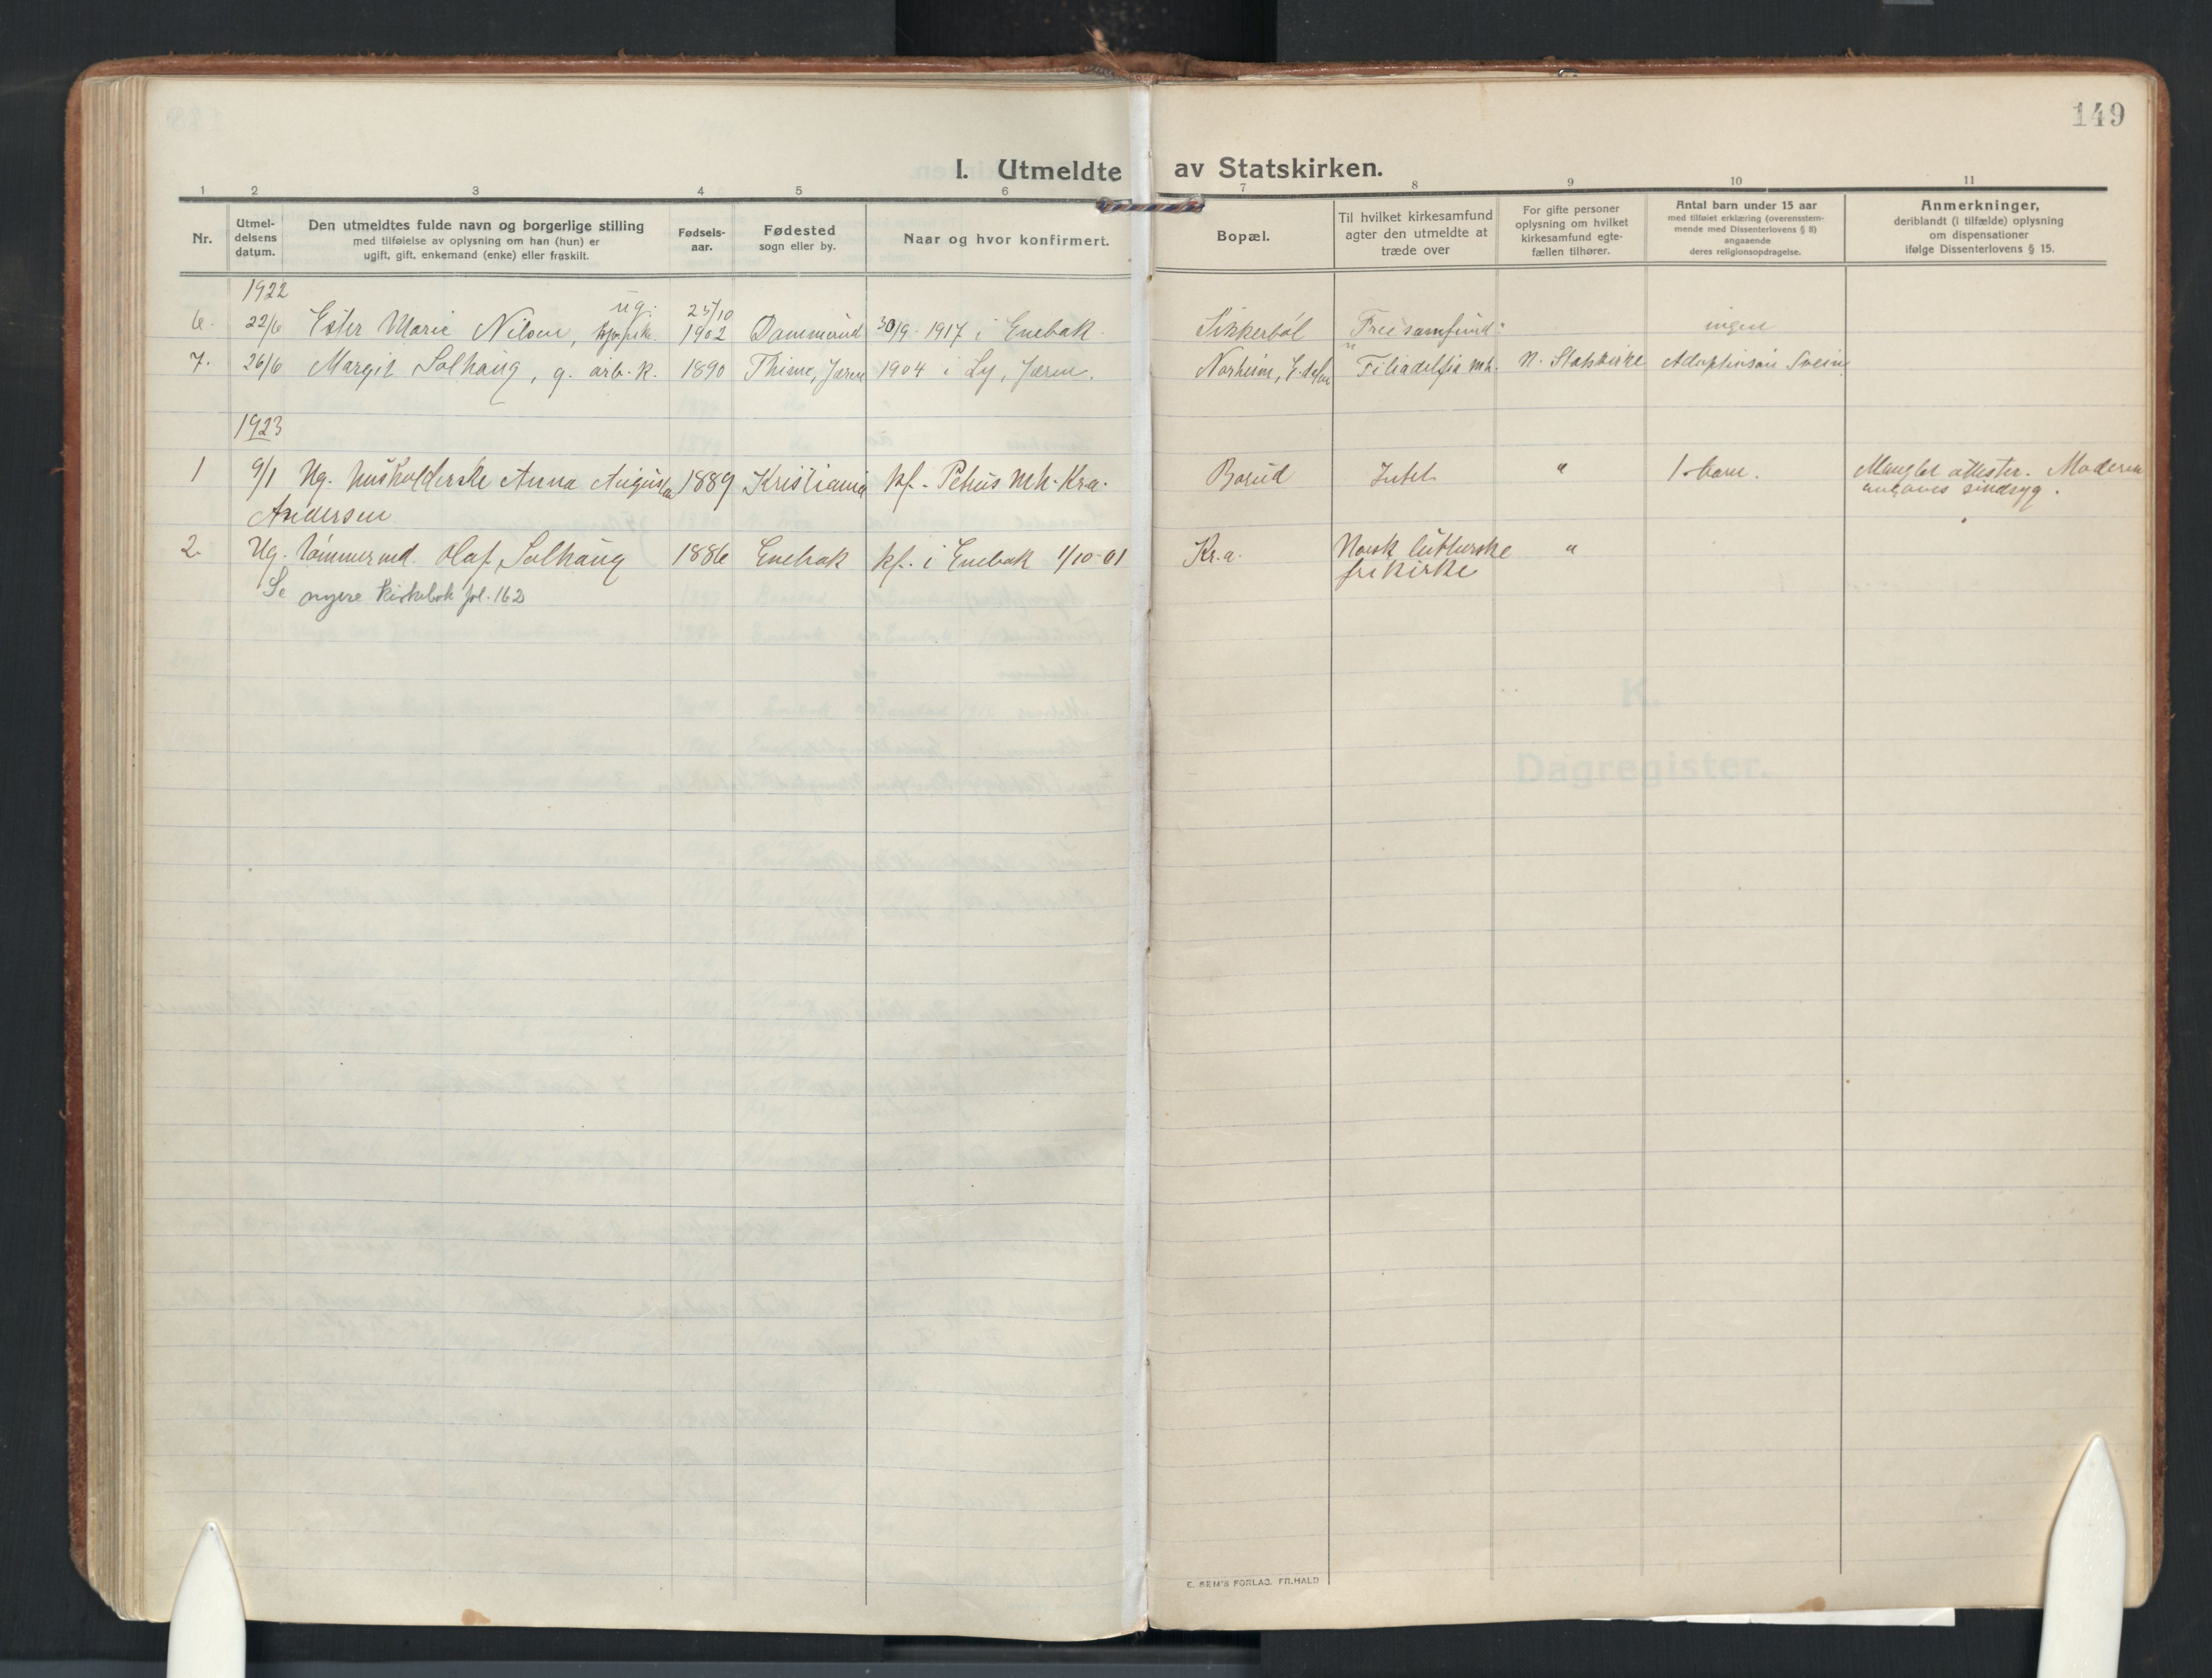 149
I. Utmeldte av Statskirken.
1 2 3 4 5 6 7 8 9 10 11
Nr.
Utmel-
delsens
datum.
Den utmeldtes fulde navn og borgerlige stilling
med tilføielse av oplysning om han (hun) er
ugift, gift, enkemand (enke) eller fraskilt.
Fødsels-
aar.
Fødested
sogn eller by.
Naar og hvor konfirmert.
Bopæl.
Til hvilket kirkesamfund
agter den utmeldte at
træde over
For gifte personer
oplysning om hvilket
kirkesamfund egte-
fællen tilhører.
Antal barn under 15 aar
med tilføiet erklæring (overensstem-
mende med Dissenterlovens § 8)
angaaende
deres religionsopdragelse.
Anmerkninger,
deriblandt (i tilfælde) oplysning
om dispensationer
ifølge Dissenterlovens § 15.
1922
6. 22/6 Ester Marie Nilsen, ug. 25/10 1902 Dammerud 30/9 1917 i Enebak. Sikkerbøl Freesamfund: ingen
7. 26/6 Margit Solhaug, g. arb.k. 1890 Thime, Jæren 1904 i Ly, Jæren. Norheim, Filiadelfia mh. N. Statskirke Adoptivsøn Svein
1923
1 9/1 Ug. husholderske Anna Augusta 1889 Kristiania kf. Petrus mh. Kr.a. Borud Intet " 1 barn. Mangler attester. Moderen
Andersen angives sindsyg.
2. Ug. tømmermd. Olaf Solhaug 1886 Enebak kf. i Enebak 1/10-01 Kr.a. Norsk lutherske "
frikirke
Se nyere kirkebok fol. 162
K.
Dagregister.
E. SEM'S FORLAG, FR.HALD